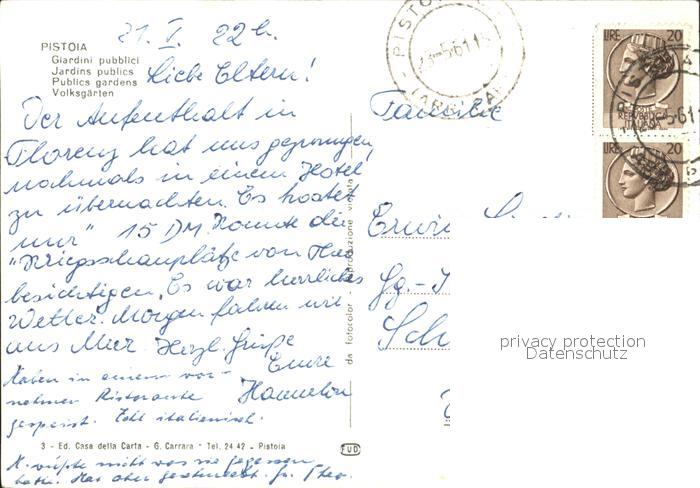 21. I. 22 h.
PISTOIA
Giardini pubblici
Jardins publics
Publics gardens
Volksgärten
Liebe Eltern!
Der Aufenthalt in
Florenz hat uns gezwungen,
nochmals in einem Hotel
zu übernachten. Es kostet
nur" 15 DM. Konnte die
"Kriegsschauplätze von
besichtigen. Es war herrliches
Wetter. Morgen fahren wir
ans Meer. Herzl. Grüße
Eure
Hannelore
Haben in einem vor-
nehmen Ristorante
gespeist. Echt italienisch.
3 - Ed. Casa della Carta - G. Carrara - Tel. 24.42 - Pistoia
H. wußte nicht was sie gegessen
hatte. Hat aber geschmeckt. Gr. Theo.
da fotocolor riproduzione vietata
FUD
PISTOIA
23-5-61
LIRE 20
REPUBBLICA
ITALIANA
LIRE 20
5-61
Familie
Erwin
Sch
privacy protection
Datenschutz